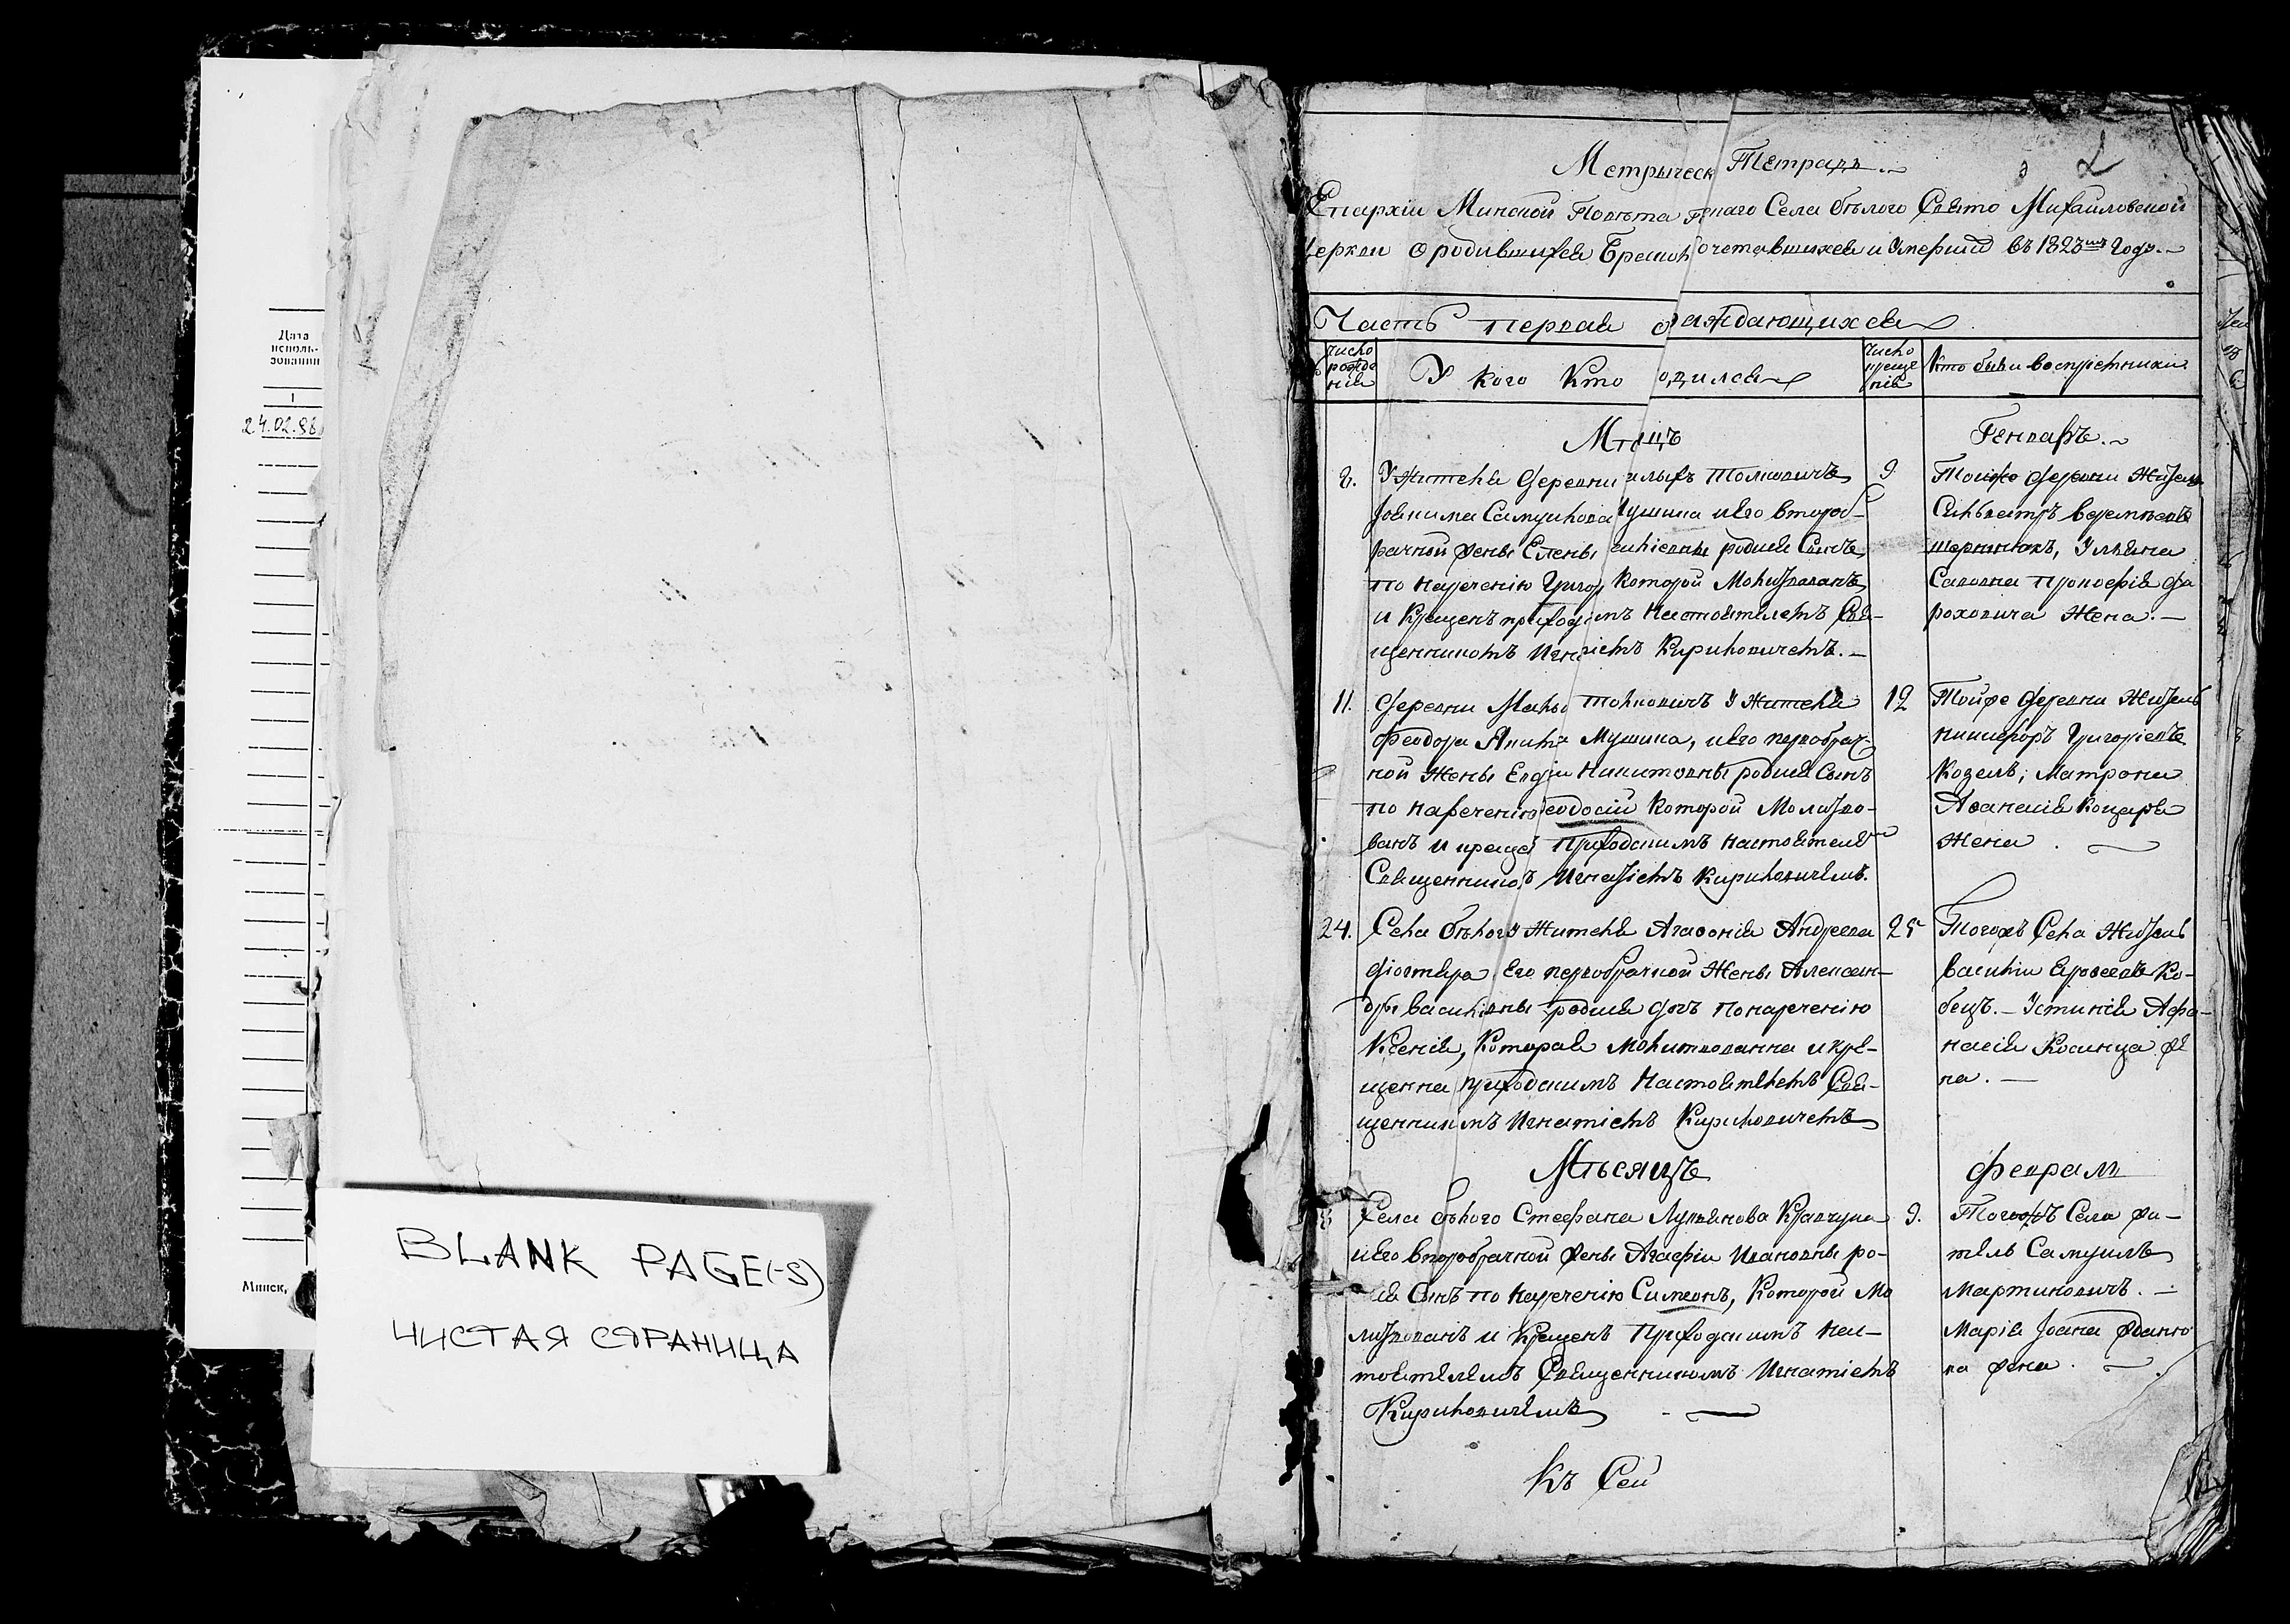 Дата
исполь-
зования
1
24.02.98
Минск,
BLANK PAGE(-S)
ЧИСТАЯ СТРАНИЦА
Метрическ Тетрадь
2
Епархіи Минской Повѣта наго Села бѣлого Свято Михайловской
Церкви О родившихся Брако очетавшихся и Умерших въ 1823мъ Годѣ.
Часть первая раждающихся
число рожде нія
У кого Кто одился
число креще нія
Кто были воспріемники
Мцъ
Генварь.
8. У Жителя Деревни алыхъ Толковичъ
Іоакима Самуилова Мушика и Его второб-
рачной Жены Елены родися Сынъ
по наречению Григор Которой Молитвованъ
и Крещенъ приход имъ Настоятелемъ Свя-
щенникомъ Игна іемъ Кириловичемъ.
9
Тойже Деревни Житель
Сильвестръ
Ульяна
Савовна Прокофія
Жена.
11. Деревни Малы Толковичъ У Жителя
Феодора Мушика, и Его первобрач-
ной Жены Евд Никитовны родися Сынъ
по наречению еодосій Которой Молитво-
ванъ и креще Приходскимъ Настоятеле
Священнико ъ Игнатіемъ Кириловичемъ.
12
Тойже Деревни Житель
Никифоръ Григоріевъ
Козелъ, Матрона
Афанасія Коцаря
Жена
24. Села бѣлого У Жителя Агафонія Андреева
Его первобрачной Жены Алексан-
дры васильевны родися дочь По наречению
Ксенія, Которая Молитвованна и кре-
щенна приходскимъ Настоятелемъ Свя-
щенник мъ Игнатіемъ Кириловичемъ
25
Тогожъ Села Житель
Василій Ко-
бецъ. Устинія Афа-
насія Косинца Же
на.
Мѣсяцъ
Феврал
8
Села бѣлого Стефана Лукьянова Кравчука
и Его второбрачной Жены Агафіи Ивановны ро-
ся Сынъ по наречению Симеонъ, Которой Мо
литвованъ и Крещенъ Приходскимъ Нас-
тоятелемъ Священникомъ Игнатіемъ
Кириловичемъ
9.
Тогожъ Села Жи-
тель Самуилъ
Мартиновичъ.
Марія Іоана
ва Жена.
Къ Сей